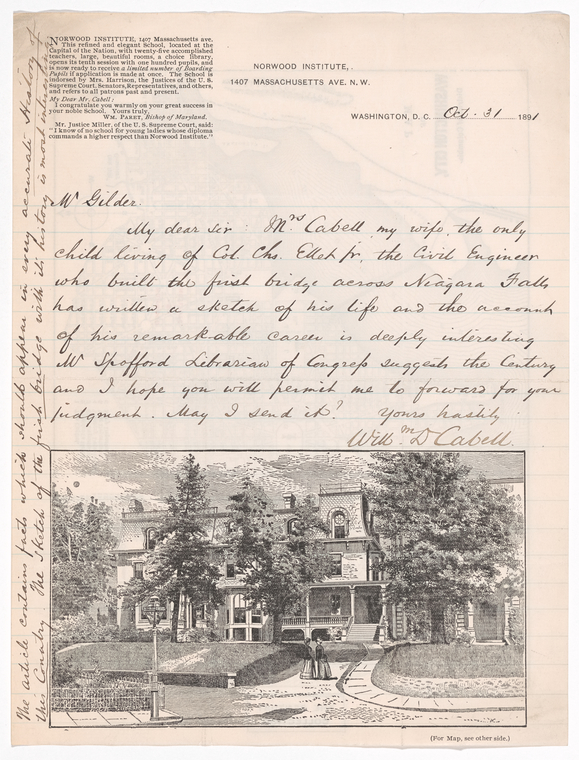 NORWOOD INSTITUTE, 1407 Massachusetts ave.
This refined and elegant School, located at the
Capital of the Nation, with twenty-five accomplished
teachers, large, beautiful rooms, a choice library,
opens its tenth session with one hundred pupils, and
is now ready to receive a limited number of Boarding
Pupils if application is made at once. The School is
indorsed by Mrs. Harrison, the Justices of the U. S.
Supreme Court, Senators, Representatives, and others,
and refers to all patrons past and present.
My Dear Mr. Cabell:
I congratulate you warmly on your great success in
your noble School. Yours truly,
WM. PARET, Bishop of Maryland.
Mr. Justice Miller, of the U. S. Supreme Court, said:
"I know of no school for young ladies whose diploma
commands a higher respect than Norwood Institute."
NORWOOD INSTITUTE,
1407 MASSACHUSETTS AVE. N. W.
WASHINGTON, D. C. Oct. 31 1891
Mr Gilder.
My dear sir: Mrs Cabell my wife, the only
child living of Col. Chs. Ellet Jr, the Civil Engineer
who built the first bridge across Niagara Falls
has written a sketch of his life and the account
of his remarkable career is deeply interesting
Mr Spofford Librarian of Congress suggests the Century
and I hope you will permit me to forward for your
judgment. May I send it? Yours hastily
Willm D Cabell.
The article contains facts which should appear in every accurate History of
this Country. The Sketch of the first bridge with its history is most interesting
(For Map, see other side.)